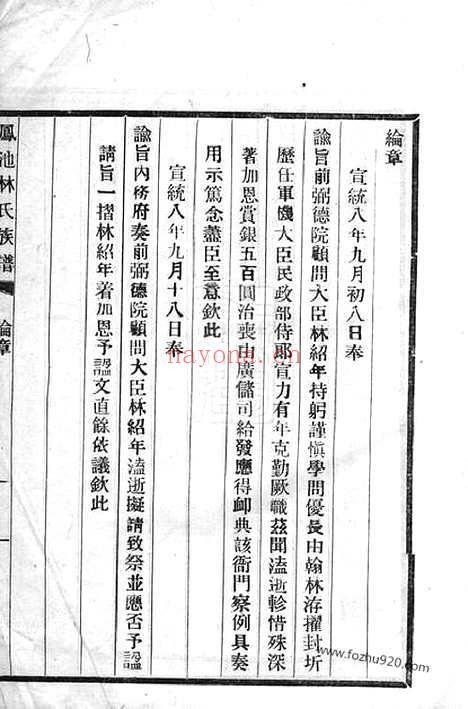 綸章
宣統八年九月初八日奉
諭旨前弼德院顧問大臣林紹年持躬謹愼學問優長由翰林洊擢封圻
歷任軍機大臣民政部侍郞宣力有年克勤厥職茲聞溘逝軫惜殊深
著加恩賞銀五百圓治喪由廣儲司給發應得卹典該衙門察例具奏
用示篤念藎臣至意欽此
宣統八年九月十八日奉
諭旨內務府奏前弼德院顧問大臣林紹年溘逝擬請致祭並應否予諡
請旨一摺林紹年著加恩予諡文直餘依議欽此
鳳池林氏族譜
綸章
nayona.cn
www.fozhu920.com